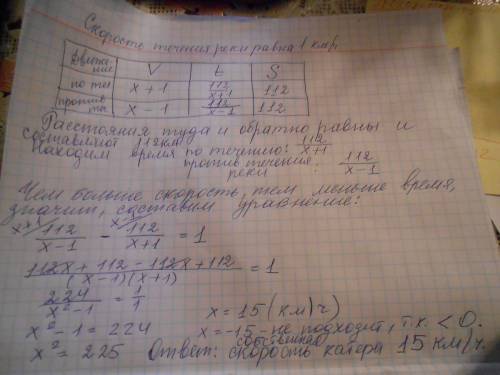 Скорость течения реки равна 1 км/ч
Движение V t S
по теч x + 1 112/x+1 112
против теч x − 1 112/x−1 112
Расстояния туда и обратно равны и
составляют 112км
Находим время по течению: 112/x+1
против течения реки : 112/x−1
Чем больше скорость, тем меньше время,
значит, составим уравнение:
x+1/ 112/x−1 − x−1/ 112/x+1 = 1
112x + 112 − 112x + 112/(x−1)(x+1) = 1
224/x²−1 = 1/1
x² − 1 = 224
x² = 225
x = 15 (км/ч)
x = −15 – не подходит, т.к. < 0.
Ответ: собственная скорость катера 15 км/ч.